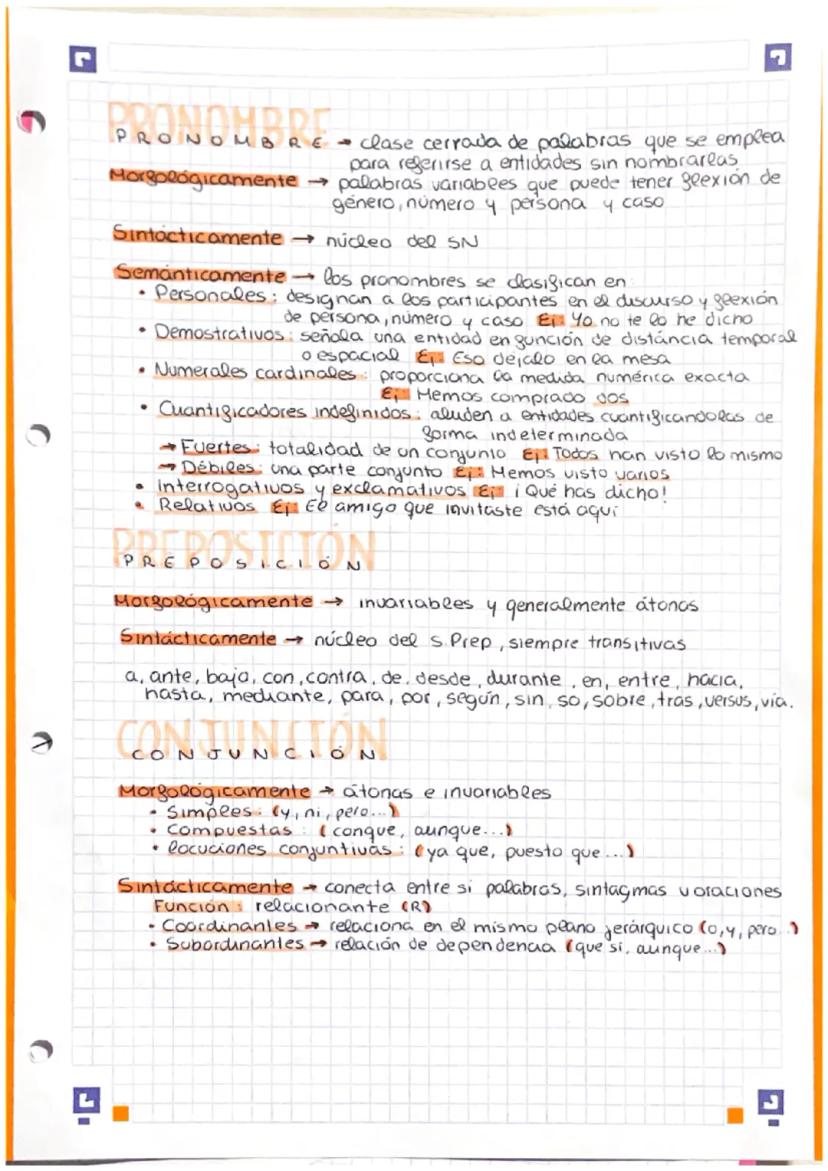 PRONOMBRE
PRONOMBRE → clase cerrada de palabras que se emplea
para referirse a entidades sin nombrarlas
Morfológicamente → palabras variables que puede tener flexión de
género, número y persona y caso
Sintácticamente → núcleo del SN
Semánticamente → los pronombres se clasifican en:
• Personales: designan a los participantes en el discurso y flexión
de persona, número y caso Ej: Yo no te lo he dicho
• Demostrativos: señala una entidad en función de distáncia temporal
o espacial Ej: Eso dejalo en la mesa
• Numerales cardinales: proporciona la medida numérica exacta
Ej: Hemos comprado dos
• Cuantificadores indefinidos: aluden a entidades cuantificandolas de
forma indeterminada
→ Fuertes: totalidad de un conjunto Ej: Todos han visto lo mismo
→ Débiles: una parte conjunto Ej: Hemos visto varios
• Interrogativos y exclamativos Ej: ¡Qué has dicho!
• Relativos Ej: El amigo que invitaste está aquí
PREPOSICIÓN
PREPOSICIÓN
Morfológicamente → invariables y generalmente átonas
Sintácticamente → núcleo del S.Prep, siempre transitivas
a, ante, bajo, con, contra, de, desde, durante, en, entre, hacia,
hasta, mediante, para, por, según, sin, so, sobre, tras, versus, vía.
CONJUNCIÓN
CONJUNCIÓN
Morfológicamente → átonas e invariables
• Simples: (y, ni, pero...)
• Compuestas: (conque, aunque...)
• locuciones conjuntivas: (ya que, puesto que...)
Sintácticamente → conecta entre si palabras, sintagmas u oraciones
Función: relacionante (R)
• Coordinantes → relaciona en el mismo plano jerárquico (o, y, pero...)
• Subordinantes → relación de dependencia (que si, aunque...)